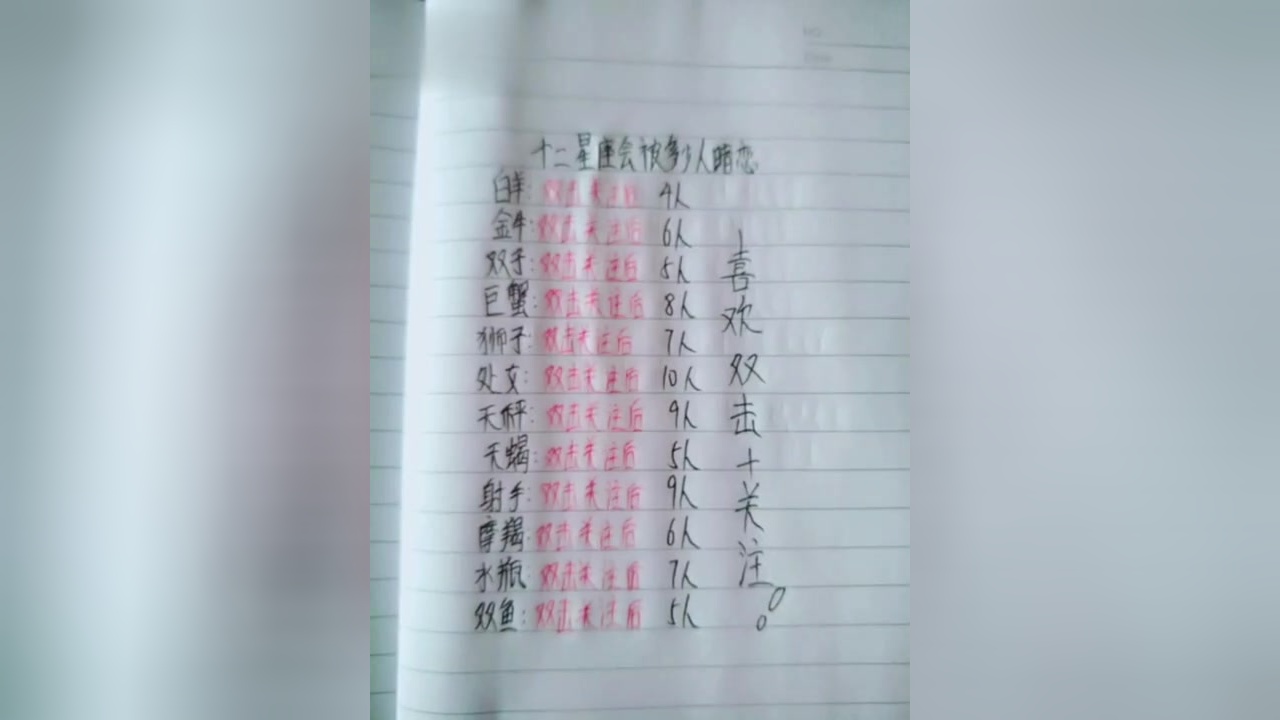 十二星座会被多少人暗恋
白羊:双击关注后 4人
金牛:双击关注后 6人
双子:双击关注后 5人
巨蟹:双击关注后 8人
狮子:双击关注后 7人
处女:双击关注后 10人
天秤:双击关注后 9人
天蝎:双击关注后 5人
射手:双击关注后 9人
摩羯:双击关注后 6人
水瓶:双击关注后 7人
双鱼:双击关注后 5人
喜欢双击+关注。